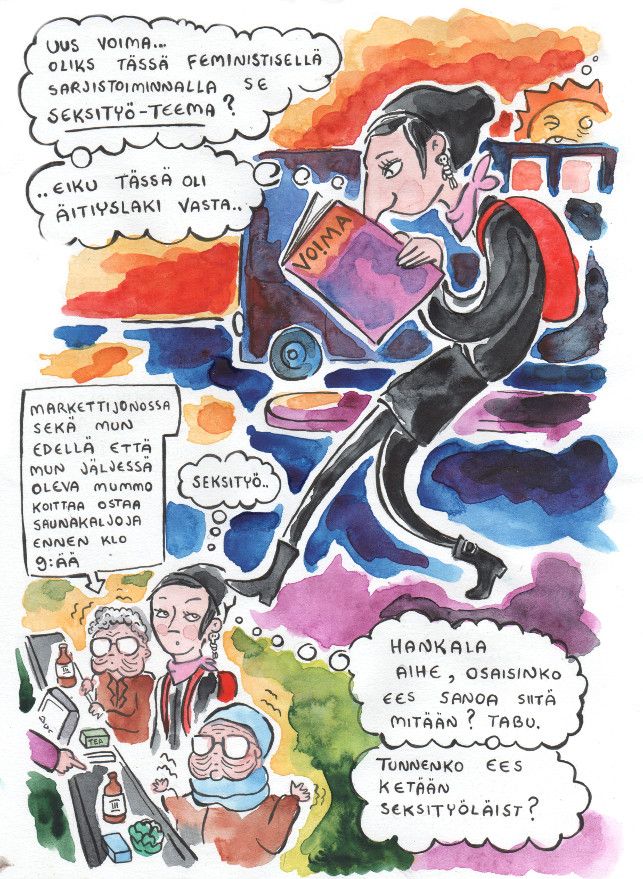 UUS VOIMA...
OLIKS TÄSSÄ FEMINISTISELLÄ
SARJISTOIMINNALLA SE
SEKSITYÖ-TEEMA?
..EIKU TÄSSÄ OLI
ÄITIYSLAKI VASTA..
VOIMA
MARKETTIJONOSSA
SEKÄ MUN
EDELLÄ ETTÄ
MUN JÄLJESSÄ
OLEVA MUMMO
KOITTAA OSTAA
SAUNAKALJOJA
ENNEN KLO
9:ÄÄ
SEKSITYÖ..
HANKALA
AIHE, OSAISINKO
EES SANOA SIITÄ
MITÄÄN? TABU.
TUNNENKO EES
KETÄÄN
SEKSITYÖLÄIST?
III
TEA
III